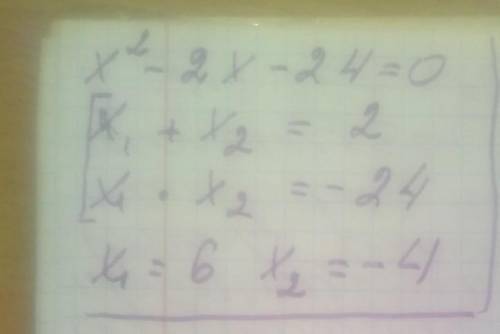 x² - 2x - 24 = 0
[x₁ + x₂ = 2
x₁ · x₂ = -24
x₁ = 6 x₂ = -4